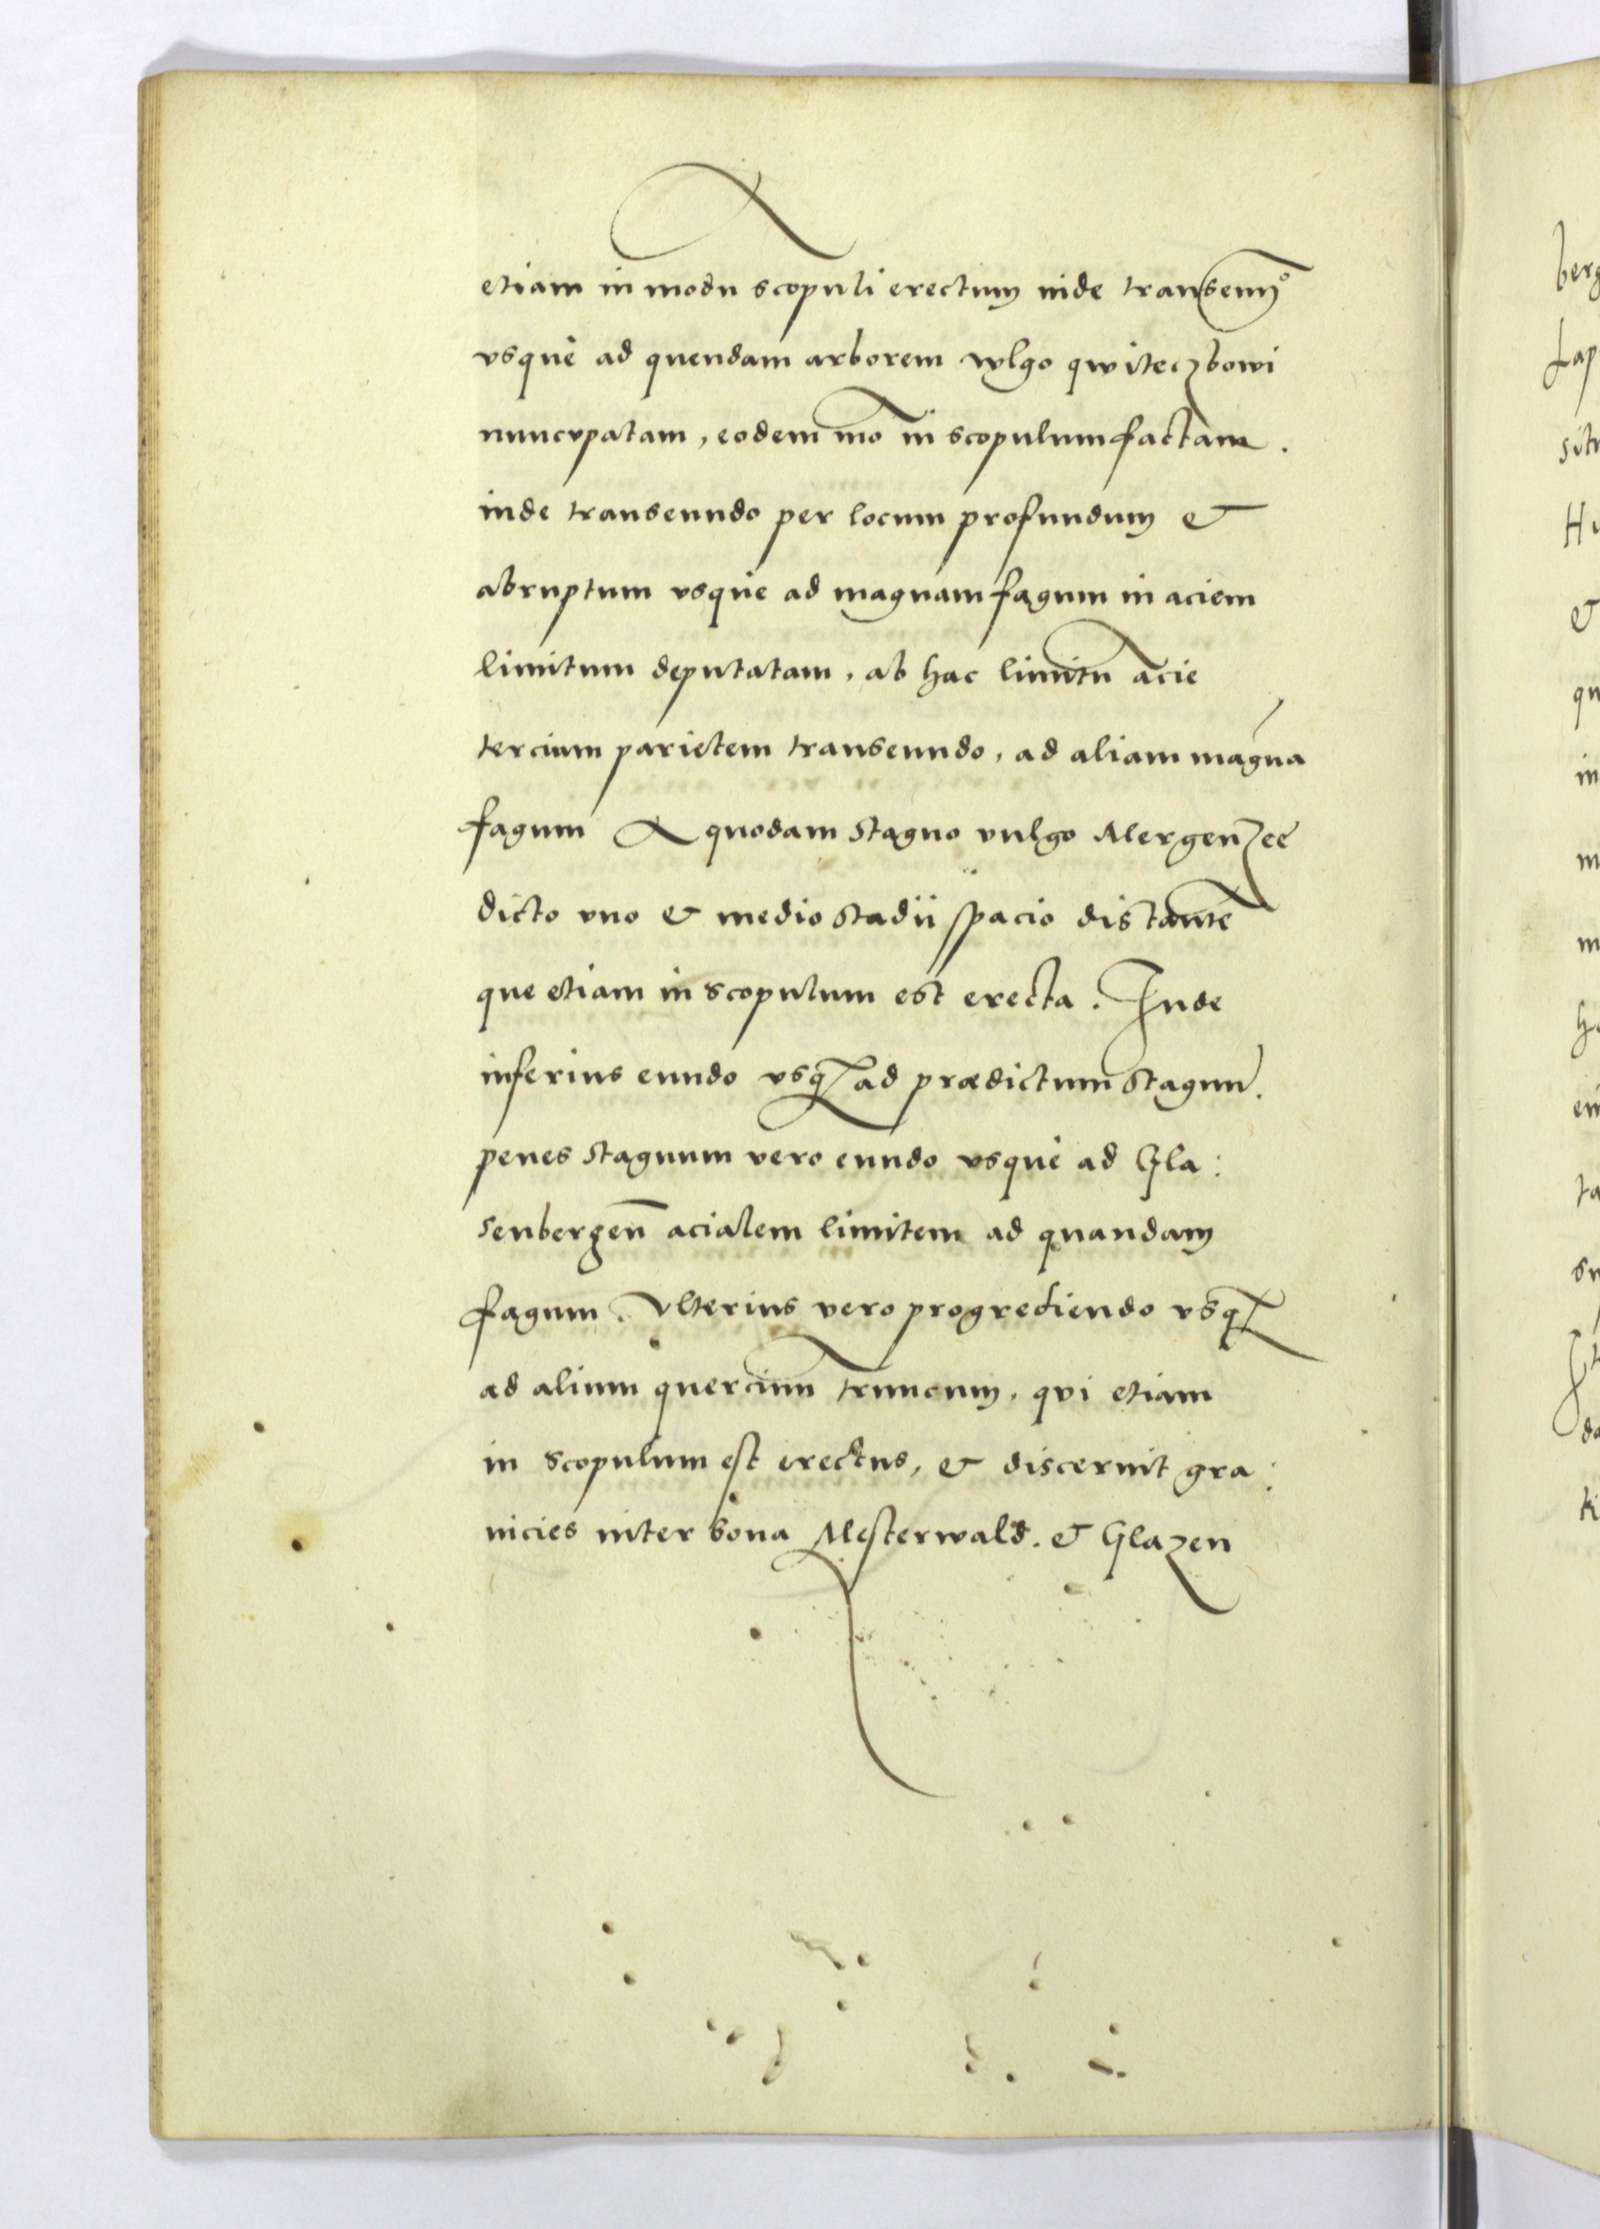 etiam in modū scopuli erectum inde transeund͞o
vsque ad quendam arborem wlgo qwiteczbowi
nuncvpatam, eodem mō in scopulum factam.
inde transeundo per locum profundum &
abruptum vsque ad magnam fagum in aciem
limitum deputatam, ab hac limitū acie
tercium parietem transeundo, ad aliam magnā
fagum A quodam stagno vulgo Mergenzeē
dicto vno & medio stadii spacio distantē
que etiam in scopulum est erecta. Inde
inferius eundo vsqꝫ ad prædictum stagnū.
penes stagnum vero eundo vsque ad Gla:
senbergeñ acialem limitem ad quandam
fagum. Vlterius vero progrediendo vsqꝫ
ad alium quercinū truncum, qvi etiam
in scopulum est erectus, & discernit gra:
nicies inter bona Mesterwald. & Glazen
berg
Lap
sit
H
&
qu
in
m
m
h
ein
ta
su
da
ti